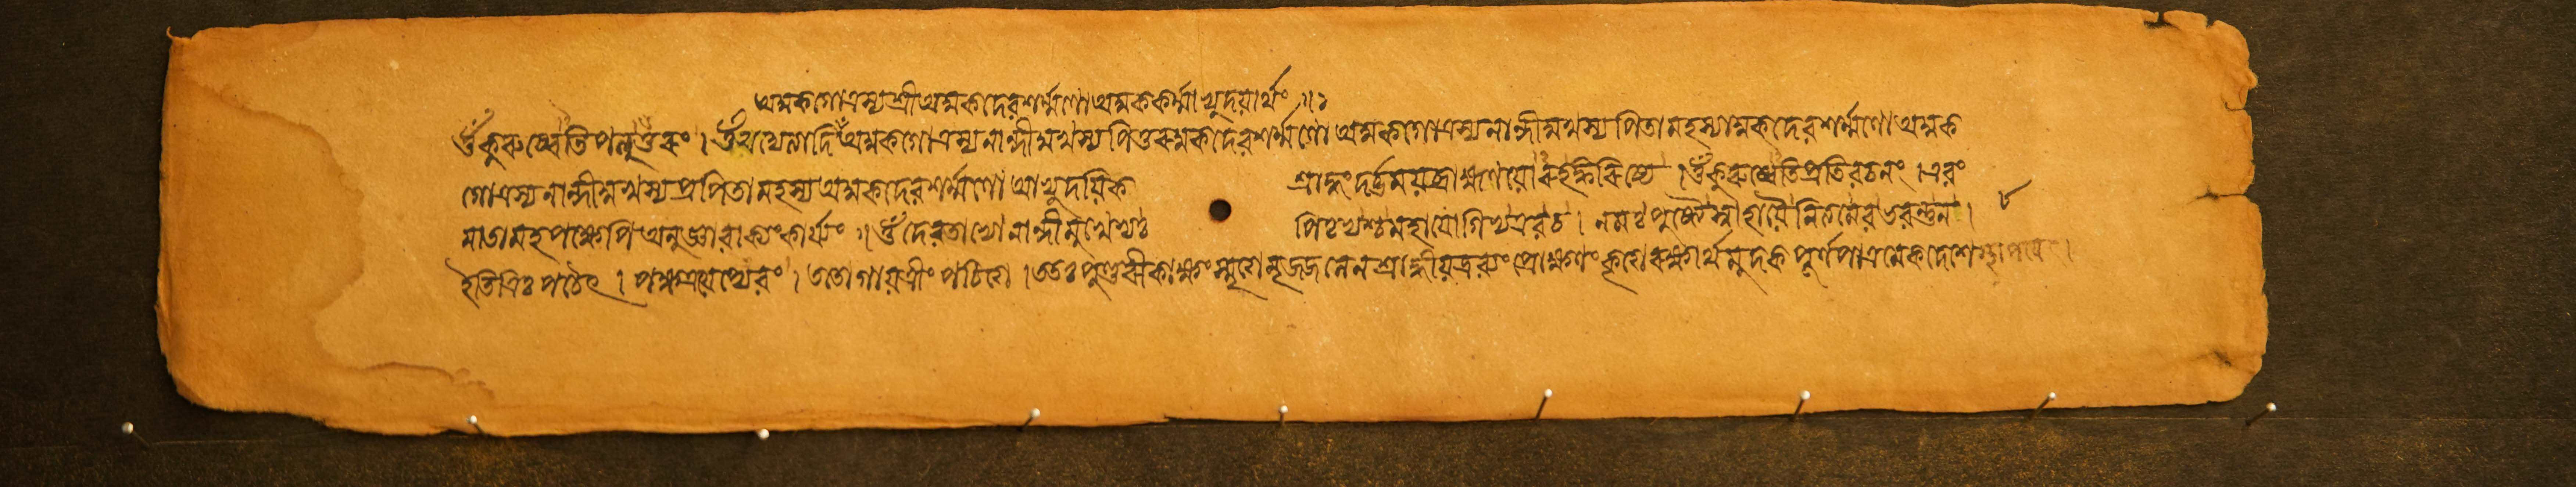 অমুকগোত্রস্য শ্রীঅমুকদেবশর্ম্মণো অমুককর্ম্মাভ্যুদয়ার্থং ॥ঃ
ওঁ কুরুষ্বেতি প্রত্যুক্তং । ওঁ অদ্যেত্যাদি অমুকগোত্রস্য নান্দীমুখস্য পিতুরমুকদেবশর্ম্মণো অমুকগোত্রস্য নান্দীমুখস্য পিতামহস্যামুকদেবশর্ম্মণো অমুক
গোত্রস্য নান্দীমুখস্য প্রপিতামহস্য অমুকদেবশর্ম্মণো আভ্যুদয়িক শ্রাদ্ধং দর্ভময়ব্রাহ্মণয়োরহং করিষ্যে । ওঁ কুরুষ্বেতি প্রতিবচনং । এবং
মাতামহপক্ষেপি অনুজ্ঞাবাক্যং কার্য্যং ॥ ওঁ দেবতাভ্যো নান্দীমুখেভ্যঃ পিতৃভ্যশ্চ মহাযোগিভ্য এব চ । নমঃ পুষ্ট্যৈ স্বাহায়ৈ নিত্যমেব ভবন্তু ন । ৮
ইতি ত্রিঃ পঠেৎ । পক্ষদ্বয়েপ্যেবং । ততো গায়ত্রীং পঠিত্বা । ততঃ পুণ্ডরীকাক্ষং স্মৃত্বা শ্রাদ্ধীয়দ্রব্যং প্রোক্ষণং কৃত্বা রক্ষার্থমুদকপূর্ণপাত্রমেকদেশে